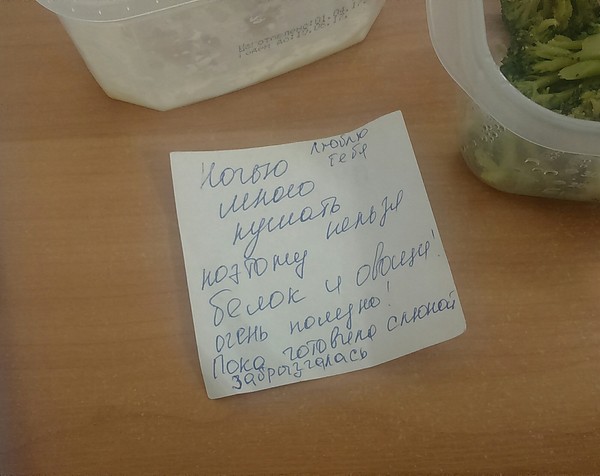 Изготовлено: 01.04.17.
Годен до: 10.06.17.
Ночью люблю
тебя
много
кушать
нельзя
поэтому
белок и овощи!
очень полезно!
Пока готовила слюной
забрызгалась